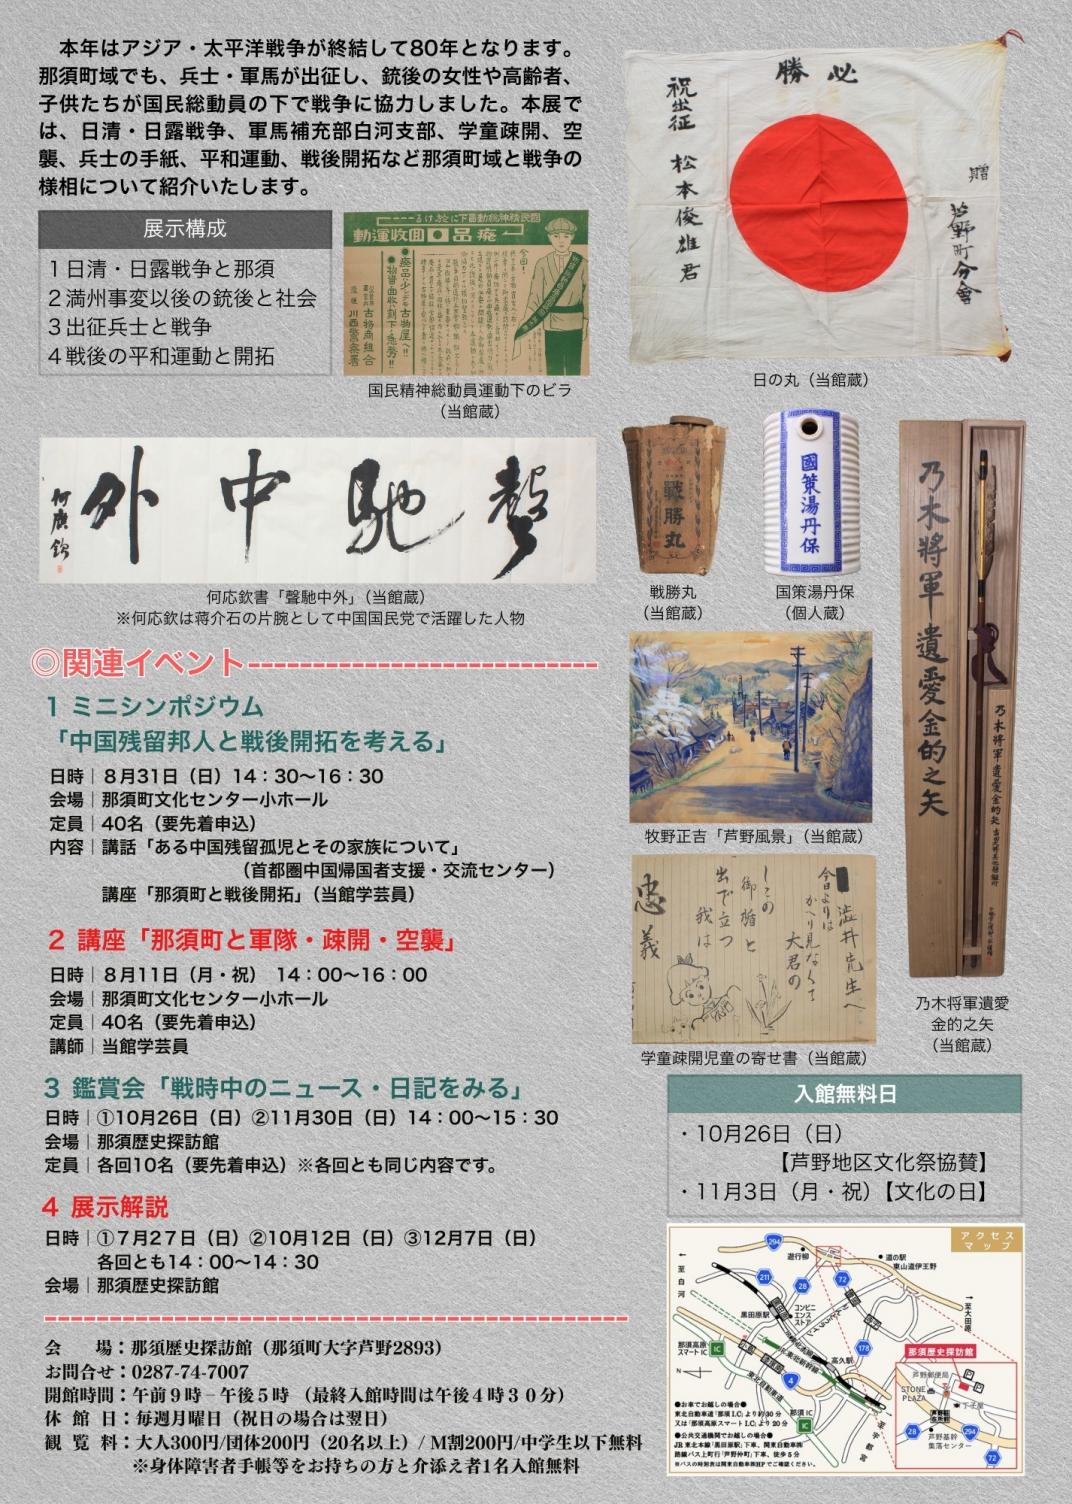 本年はアジア・太平洋戦争が終結して80年となります。
那須町域でも、兵士・軍馬が出征し、銃後の女性や高齢者、
子供たちが国民総動員の下で戦争に協力しました。本展で
は、日清・日露戦争、軍馬補充部白河支部、学童疎開、空
襲、兵士の手紙、平和運動、戦後開拓など那須町域と戦争の
様相について紹介いたします。
展示構成
1 日清・日露戦争と那須
2 満州事変以後の銃後と社会
3 出征兵士と戦争
4 戦後の平和運動と開拓
国民精神総動員運動下のビラ
（当館蔵）
必勝
祝出征 松本俊雄君
贈
芦野町分會
日の丸（当館蔵）
聲馳中外
何應欽
何応欽書「聲馳中外」（当館蔵）
※何応欽は蒋介石の片腕として中国国民党で活躍した人物
戰勝丸
戦勝丸
（当館蔵）
國策湯丹保
国策湯丹保
（個人蔵）
乃木將軍遺愛金的之矢
乃木将軍遺愛
金的之矢
（当館蔵）
牧野正吉「芦野風景」（当館蔵）
澁井先生へ
今日よりは
かへり見なくて
大君の
しこの
御楯と
出で立つ
我は
忠義
学童疎開児童の寄せ書（当館蔵）
◎関連イベント
1 ミニシンポジウム
「中国残留邦人と戦後開拓を考える」
日時｜8月31日（日）14：30〜16：30
会場｜那須町文化センター小ホール
定員｜40名（要先着申込）
内容｜講話「ある中国残留孤児とその家族について」
（首都圏中国帰国者支援・交流センター）
講座「那須町と戦後開拓」（当館学芸員）
2 講座「那須町と軍隊・疎開・空襲」
日時｜8月11日（月・祝） 14：00〜16：00
会場｜那須町文化センター小ホール
定員｜40名（要先着申込）
講師｜当館学芸員
3 鑑賞会「戦時中のニュース・日記をみる」
日時｜①10月26日（日）②11月30日（日）14：00〜15：30
会場｜那須歴史探訪館
定員｜各回10名（要先着申込）※各回とも同じ内容です。
4 展示解説
日時｜①7月27日（日）②10月12日（日）③12月7日（日）
各回とも14：00〜14：30
会場｜那須歴史探訪館
入館無料日
・10月26日（日）
【芦野地区文化祭協賛】
・11月3日（月・祝）【文化の日】
会　　場：那須歴史探訪館（那須町大字芦野2893）
お問合せ：0287-74-7007
開館時間：午前９時－午後５時 （最終入館時間は午後４時３０分）
休 館 日：毎週月曜日（祝日の場合は翌日）
観 覧 料：大人300円/団体200円（20名以上）/ M割200円/中学生以下無料
※身体障害者手帳等をお持ちの方と介添え者1名入館無料
アクセス
マップ
至白河
294
遊行柳
道の駅
東山道伊王野
211
28
72
黒田原駅
コンビニ
エンス
ストア
至大田原
那須高原
スマートIC
IC
高久駅
178
4
那須IC
IC
那須歴史探訪館
芦野郵便局
STONE
PLAZA
丁子屋
芦野基幹
集落センター
28
294
72
●お車でお越しの場合●
東北自動車道「那須I.C」より約30分
又は「那須高原スマートI.C」より20分
●公共交通機関でお越しの場合●
JR東北本線「黒田原駅」下車、関東自動車㈱
路線バス上り町行「芦野仲町」下車、徒歩5分
※バスの時刻表は関東自動車㈱HPでご確認ください。